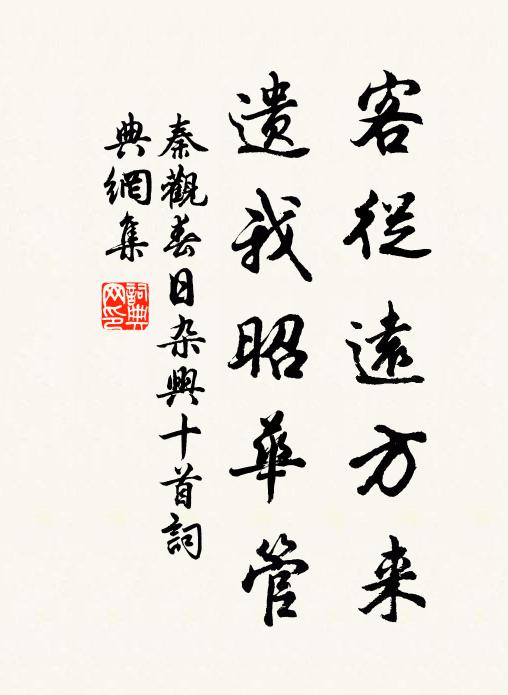 客從遠方来
遺我昭華管
秦觀春日杂興十首詞
典網集
詞典
网印